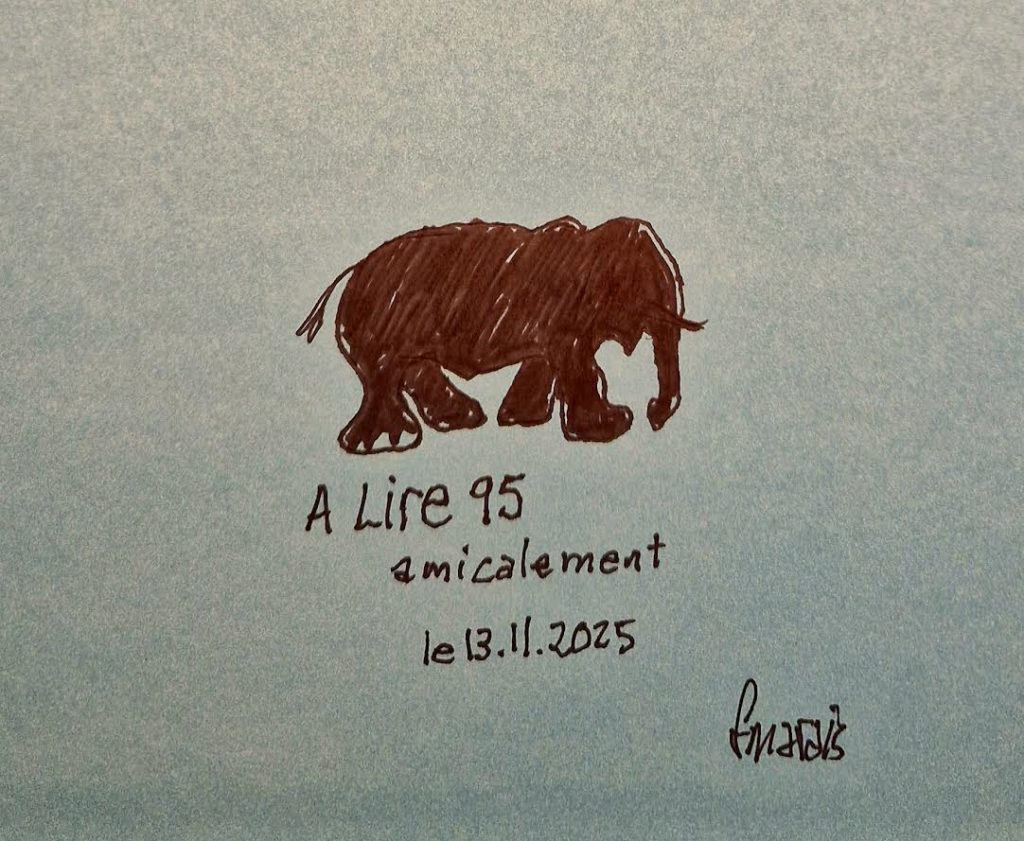 A Lire 95
amicalement
le 13.11.2025
fmarais